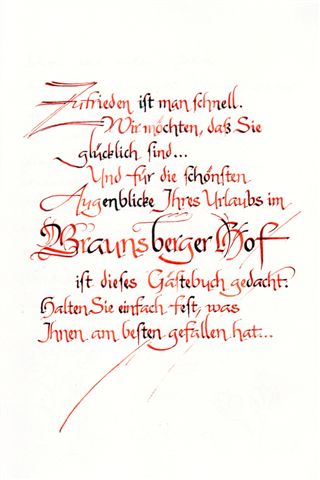 Zufrieden ist man schnell.
Wir möchten, daß Sie
glücklich sind...
Und für die schönsten
Augenblicke Ihres Urlaubs im
Braunsberger Hof
ist dieses Gästebuch gedacht.
Halten Sie einfach fest, was
Ihnen am besten gefallen hat...